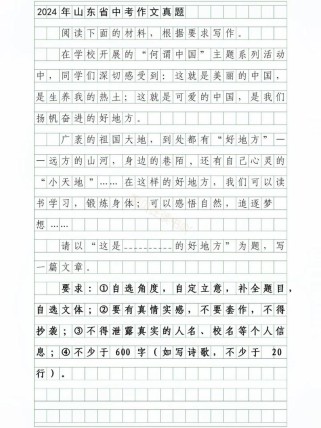 2024年山东省中考作文真题
阅读下面的材料，根据要求写作。
在学校开展的“何谓中国”主题系列活动
中，同学们深切感受到：这就是美丽的中国，
是生养我的热土；这就是可爱的中国，是我们
扬帆奋进的好地方。
广袤的祖国大地，到处都有“好地方”—
—远方的山河，身边的巷陌，还有自己心灵的
“小天地”……在这样的好地方，我们可以读
书学习，锻炼身体；可以感悟自然，追逐梦
想……
请以“这是__________的好地方”为题，写
一篇文章。
要求：①自选角度，自定立意，补全题目，
自选文体；②要有真情实感，不要套作，不得
抄袭；③不得泄露真实的人名、校名等个人信
息；④不少于600字（如写诗歌，不少于 20
行）。